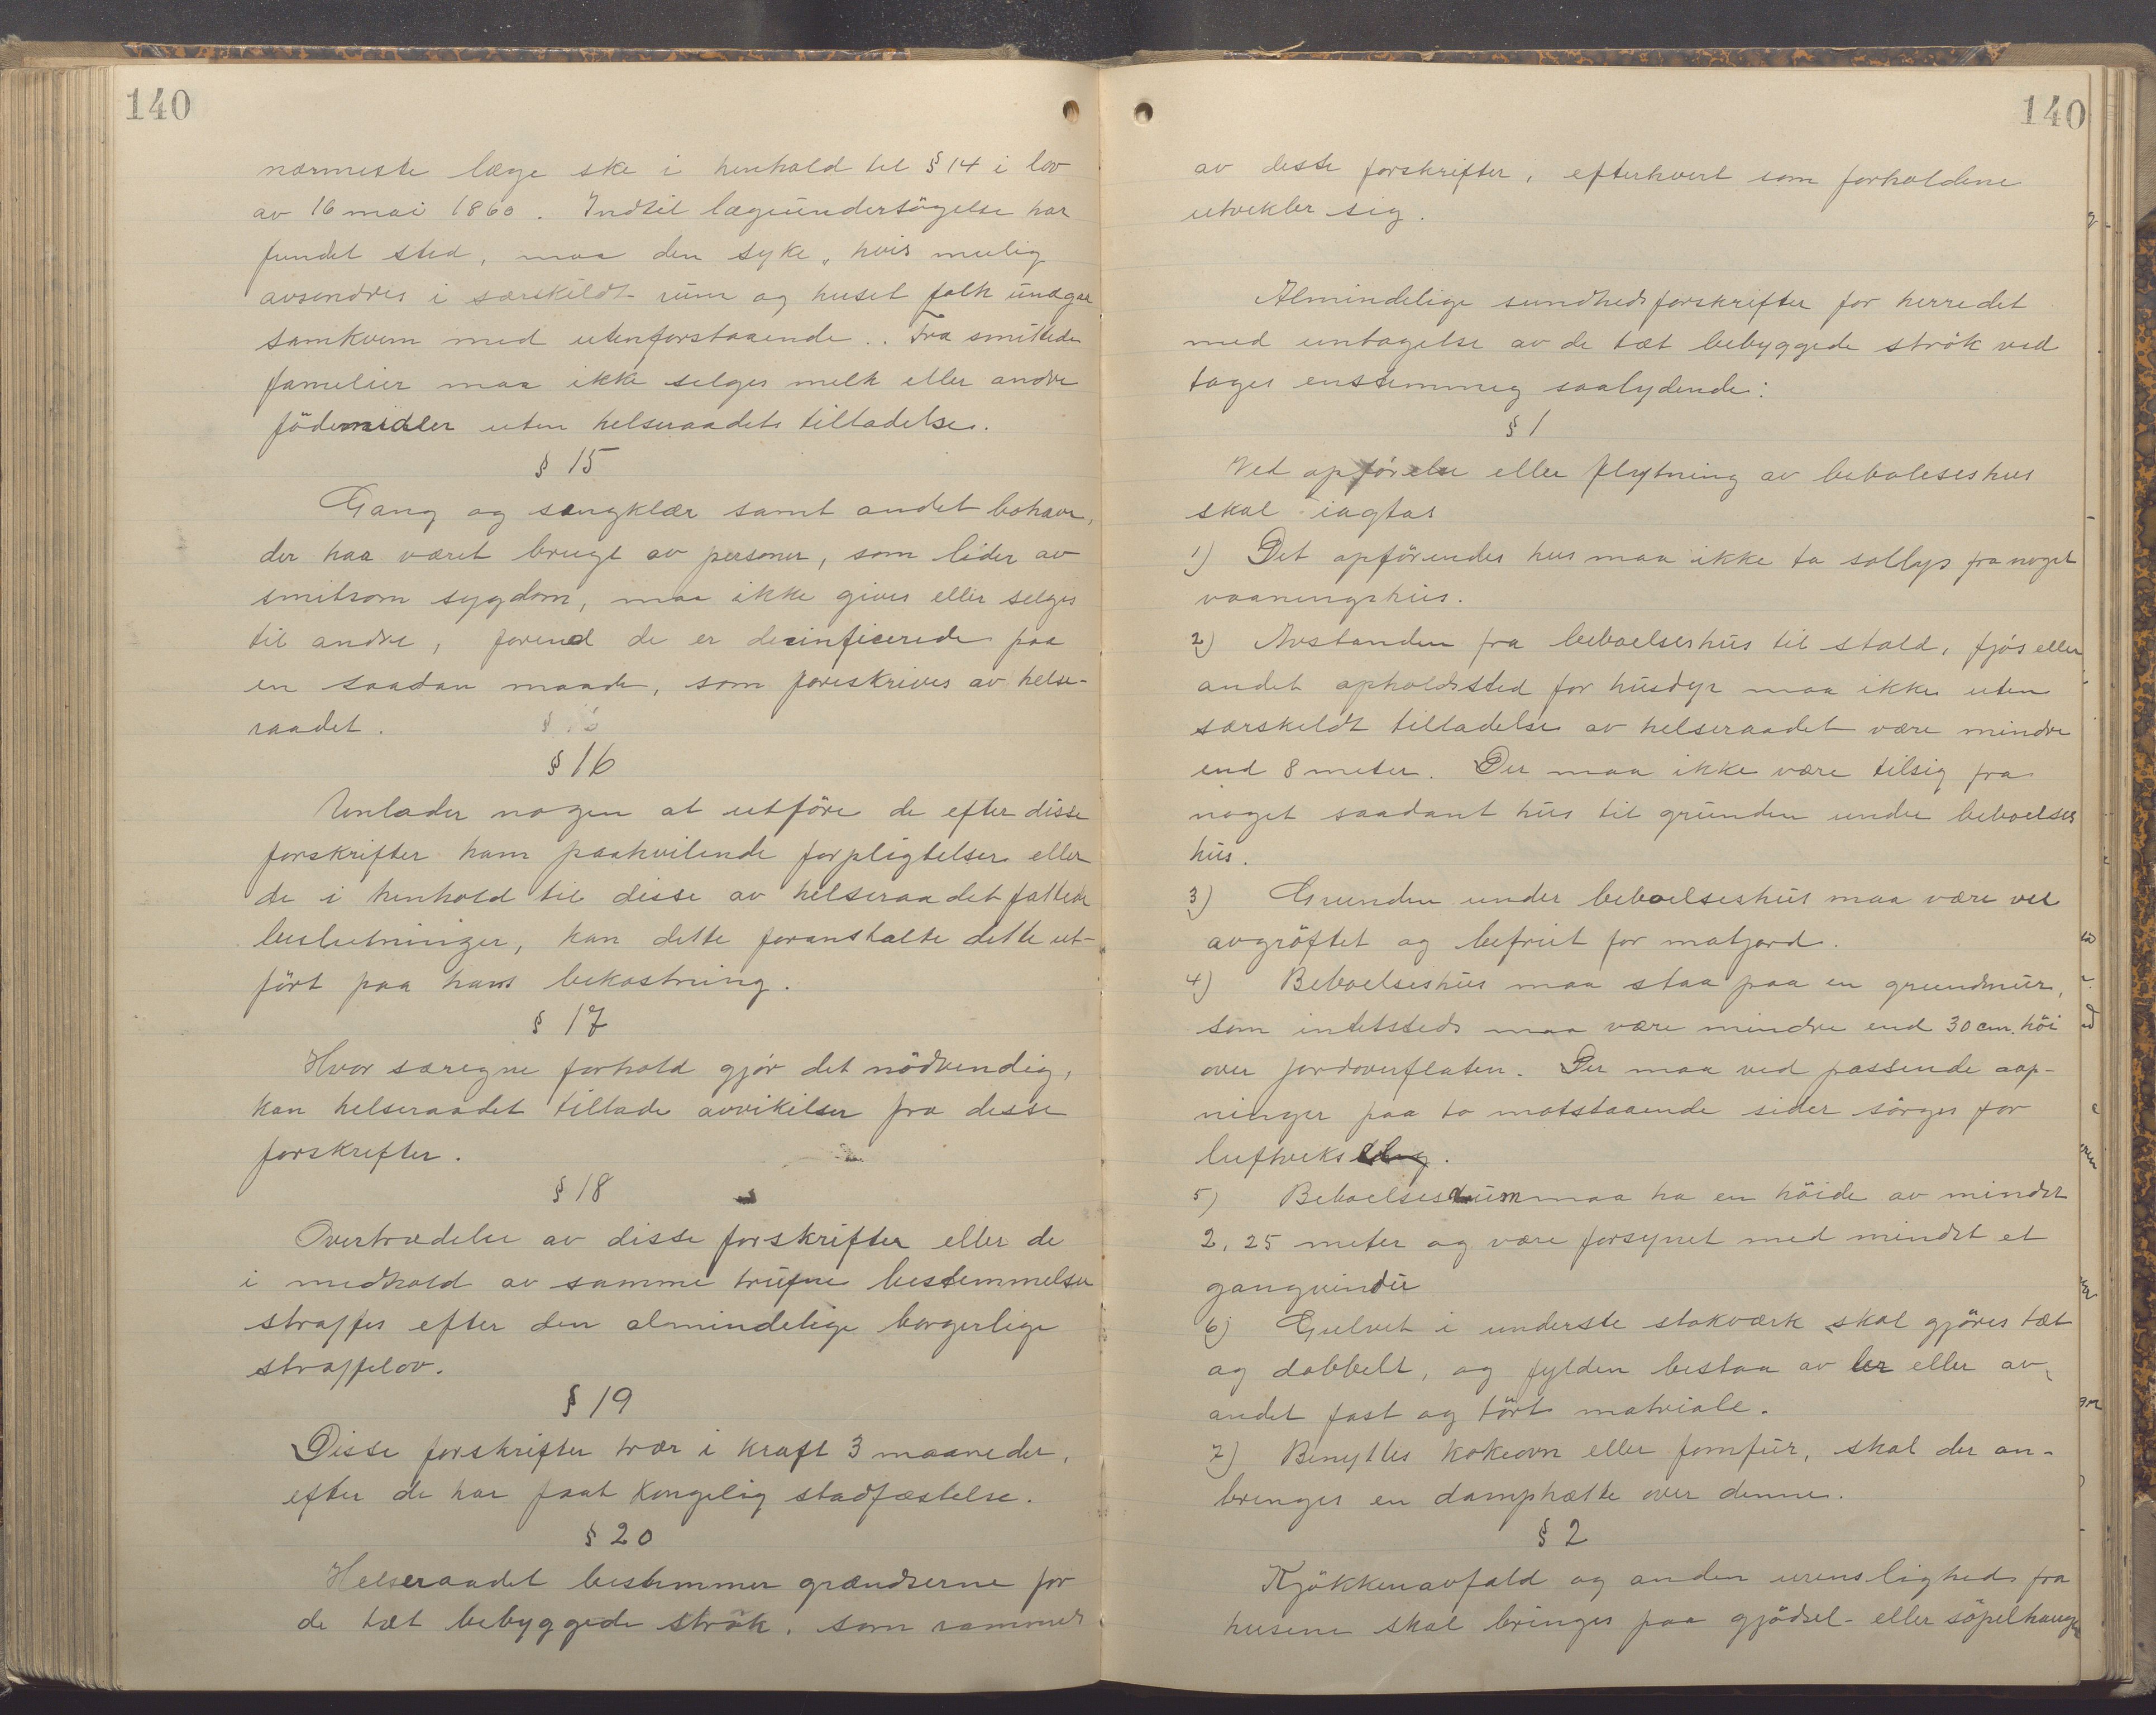 140
nærmeste læge ske i henhold til § 14 i lov
av 16 mai 1860. Indtil lægeundersögelse har
fundet sted, maa den syke, hvis mulig
avsondres i særskildt rum og huset folk undgaa
samkvem med utenforstaaende. Fra smittede
familier maa ikke selges melk eller andre
födemidler uten helseraadets tilladelse.
§ 15
Gang og sengklær samt andet bohave,
der haa været brugt av personer, som lider av
smitsom sygdom, maa ikke gives eller selges
til andre, forend de er desinficerede paa
en saadan maade, som foreskrives av helse-
raadet.
§ 16
Unlader nogen at utföre de efter disse
forskrifter ham paahvilende forpligtelser eller
de i henhold til disse av helseraadet fattede
beslutninger, kan dette foranstalte dette ut-
fört paa hans bekostning.
§ 17
Hvor særegne forhold gjör det nödvendig,
kan helseraadet tillade avvikelser fra disse
forskrifter.
§ 18
Overtrædelse av disse forskrifter eller de
i medhold av samme trufne bestemmelser
straffes efter den almindelige borgerlige
straffelov.
§ 19
Disse forskrifter trær i kraft 3 maaneder,
efter de har faat Kongelig stadfæstelse.
§ 20
Helseraadet bestemmer grændserne for
de tæt bebyggede strök, som rammes
140
av disse forskrifter, efterhvert som forholdene
utvekler sig.
Almindelige sundhedsforskrifter for herredet
med untagelse av de tæt bebyggede strök ved
tages enstemmig saalydende:
§ 1
Ved opförelse eller flytning av beboleseshus
skal iagtas
1) Det opförendes hus maa ikke ta sollys fra noget
vaaningshus.
2) Avstanden fra beboelseshus til stald, fjös eller
andet opholdssted for husdyr maa ikke uten
særskeldt tilladelse av helseraadet være mindre
end 8 meter. Der maa ikke være tilsig fra
noget saadant hus til grunden under beboelses
hus.
3) Grunden under beboelseshus maa være vel
avgröftet og befriet for matjord.
4) Beboelseshus maa staa paa en grundmur,
som intetsteds maa være mindre end 30 cm. höi
over jordoverflaten. Der maa ved passende aap-
ninger paa to motstaaende sider sörges for
luftveksling.
5) Beboelsesrum maa ha en höide av mindst
2,25 meter og være forsynet med mindst et
gangvindu
6) Gulvet i underste stokværk skal gjöres tæt
og dobbelt, og fylden bestaa av ler eller av
andet fast og tört matriale.
7) Benyttes kokeovn eller komfur, skal der an-
bringes en damphætte over denne.
§ 2
Kjökkenavfald og anden urenslighed fra
husene skal bringes paa gjödsel- eller söpelhaug